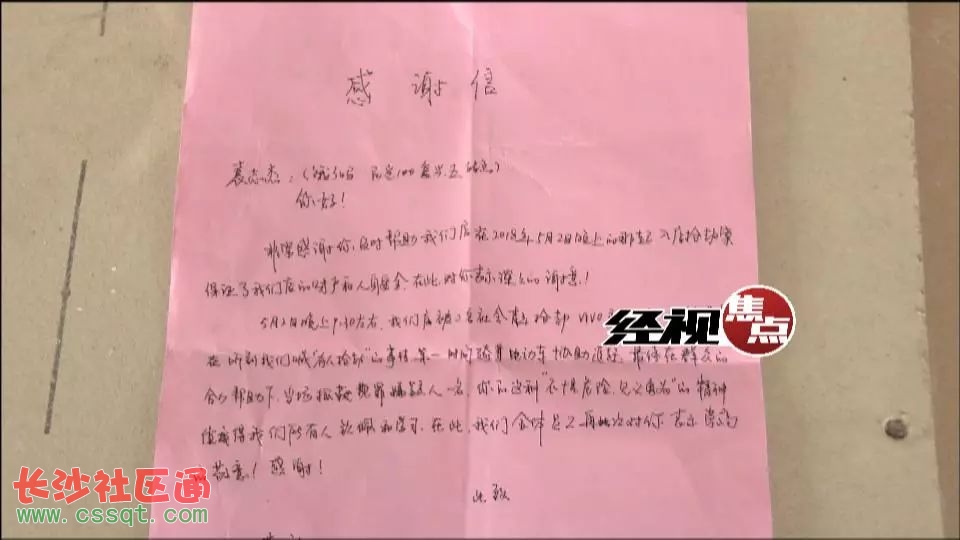 感谢信
袁志杰:(饿了么
你好!
非常感谢你,及时帮助我们店在2018年5月2日晚上的那起入店抢劫案
保证了我们店的财产和人身安全,在此,对你表示深深的谢意!
5月2日晚上9:30左右,我们店被2名社会青年抢劫vivo
在听到我们喊"有人抢劫"的事情,第一时间骑着电动车协助追赶,最终在群众的
合力帮助下,当场抓获犯罪嫌疑人一名,你的这种"不惧危险,见义勇为"的精神
值得我们所有人钦佩和学习,在此,我们全体员工再次对你表示崇高
敬意!感谢!
此致
经视焦点
长沙社区通
www.cssqt.com